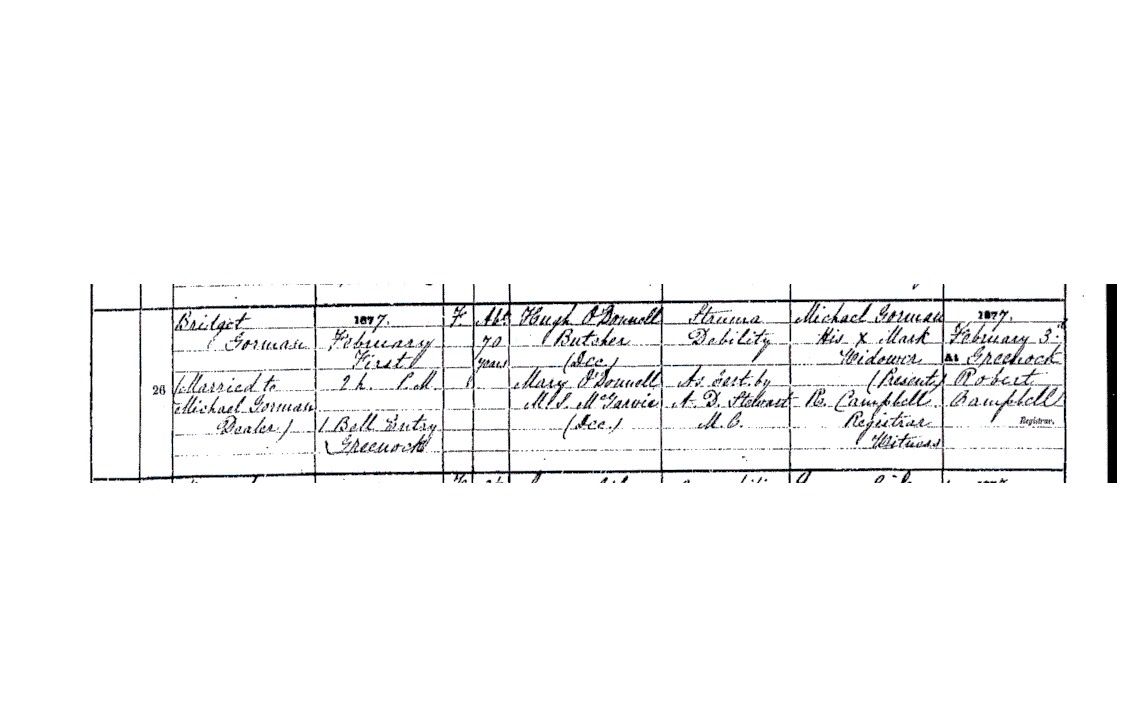 26
Bridget
Gorman
(Married to
Michael Gorman
Dealer)
1877.
February
First
2 h. P.M.
1 Bell Entry
Greenock
F
Abt
70
years
Hugh O'Donnell
Butcher
(Dec.)
Mary O'Donnell
M.S. McGarvie
(Dec.)
Struma
Debility
As Cert. by
A. D. Stewart
M.B.
Michael Gorman
His X Mark
Widower
(Present)
R. Campbell
Registrar
Witness
1877.
February 3rd
At Greenock
Robert
Campbell
Registrar.